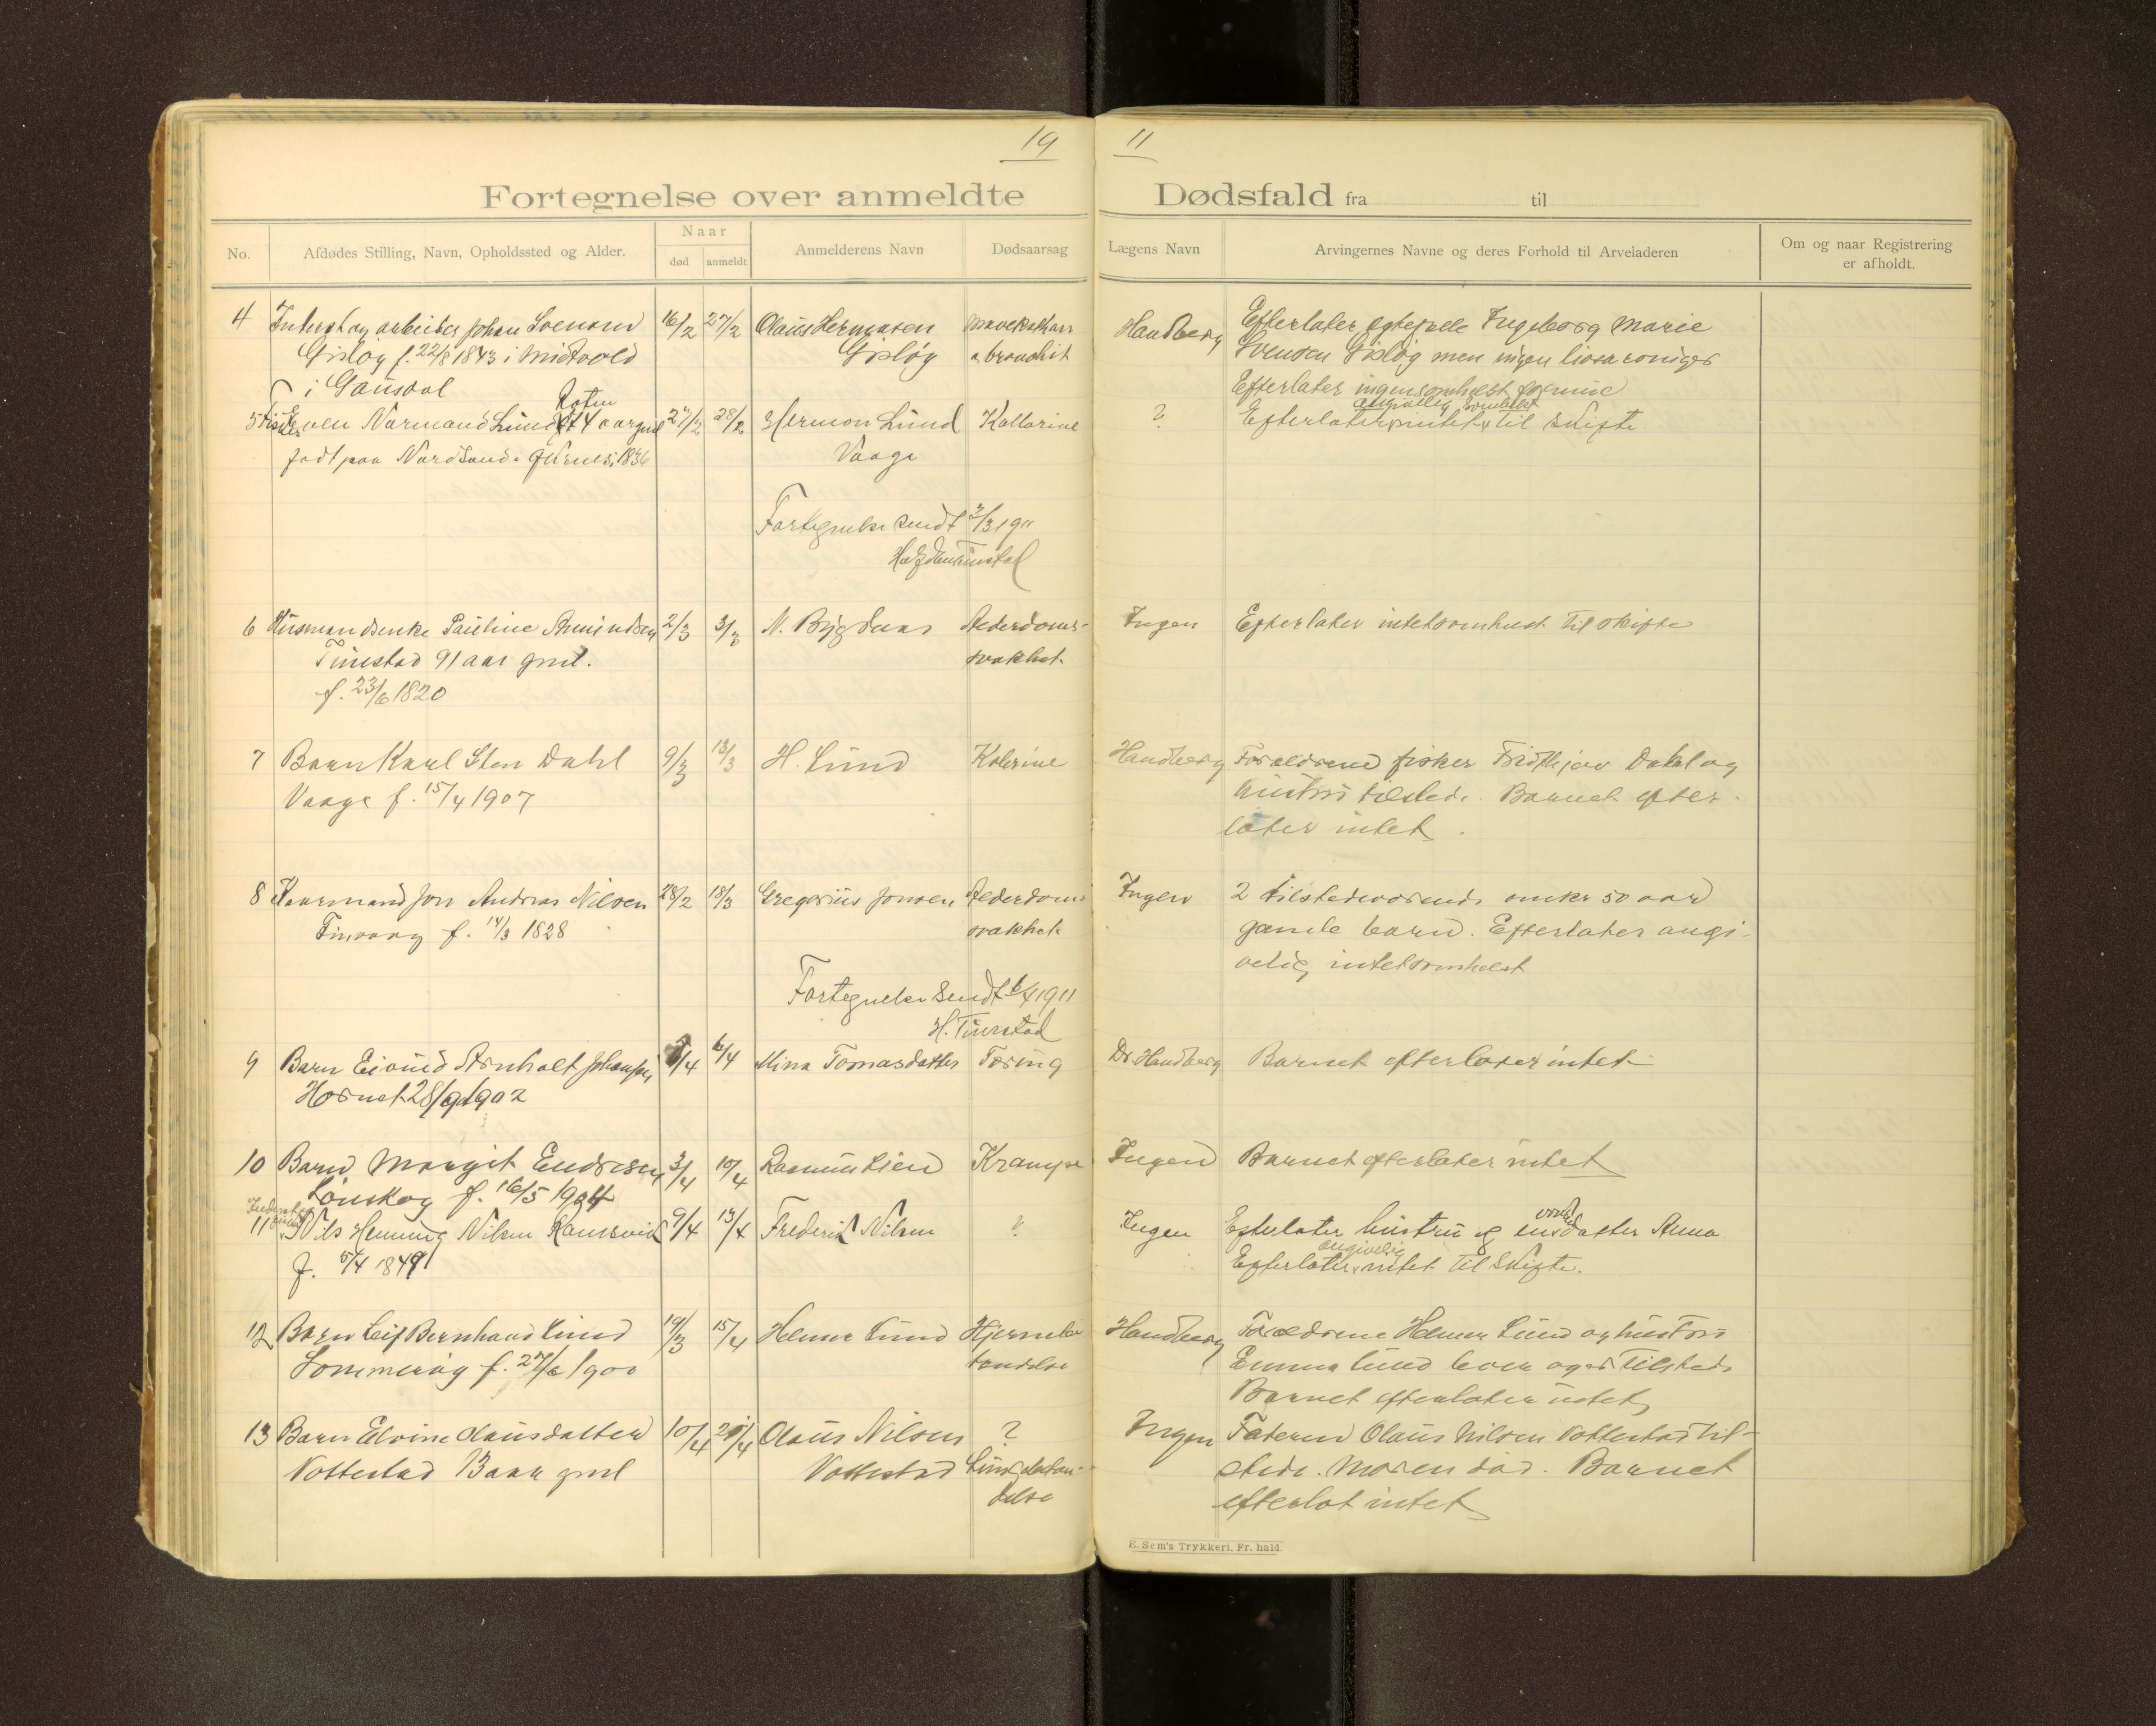 19 11
Fortegnelse over anmeldte Dødsfald fra til
No. Afdødes Stilling, Navn, Opholdssted og Alder. Naar død anmeldt Anmelderens Navn Dødsaarsag Lægens Navn Arvingernes Navne og deres Forhold til Arveladeren Om og naar Registrering er afholdt.
4 arbeider Johan Svensen 16/2 27/2 Olaus Hermansen Mavekatarr Handberg Efterlater egtefælle Ingeborg Marie
Gisløy f. 22/8 1843 i Gisløy & bronchit Svensen Gisløy men ingen livsarvinger
i Gausdal Efterlater ingensomhelst formue
5 Fisker Even Normand Lund 74 aar gml 27/2 28/2 Hermon Lund Kattarine ? Efterlater angivelig intetsomhelst til skifte
født paa 1836 Vaage
Fortegnelse sendt 2/3 1911
6 Husmandsenke Pauline Amundsen 2/3 3/3 N. Bygdnes Alderdoms- Ingen Efterlater intetsomhelst til skifte
Tinestad 91 aar gml. svakhet
f. 23/6 1820
7 Barn Karl Sten Dahl 9/3 13/3 H. Lund Kolerine Handberg Forældrene fisker Fridthjov Dahl og
Vaage f. 15/4 1907 hustru tilstede. Barnet efter-
later intet.
8 Kaarmand Jon Andreas Nilsen 28/2 18/3 Gregorius Jonsen Alderdoms Ingen 2 tilstedeværende omkr 50 aar
Finvaag f. 14/3 1828 svakhet gamle barn. Efterlater angi-
velig intetsomhelst
Fortegnelse sendt 6/4 1911
H. Tinestad
9 Barn Eivind Arnholt Johansen 5/4 6/4 Mina Tomasdatter Tæring Dr Handberg Barnet efterlater intet
28/9 1902
10 Barn Margit Endresen 3/4 10/4 Rasmus Lien Krampe Ingen Barnet efterlater intet
Lønskog f. 16/5 1904
11 Nils Henning Nilsen Ramsvik 9/4 13/4 Frederik Nilsen ? Ingen Efterlater hustru og datter Anna
f. 5/4 1849 Efterlater angivelig intet til skifte.
12 Barn Leif Bernhard Lund 19/3 15/4 Helmer Lund Hjernebe Handberg Forældrene Helmer Lund og hustru
Sommerøy f. 27/6 1900 tændelse Emma Lund lever og er tilstede
Barnet efterlater intet
13 Barn Elvine Olausdatter 10/4 20/4 Olaus Nilsen ? Ingen Faderen Olaus Nilsen Vottestad til-
Vottestad 13 aar gml Vottestad Lungebetæn- stede. Moren død. Barnet
delse efterlot intet
E. Sem's Trykkeri, Fr. hald.